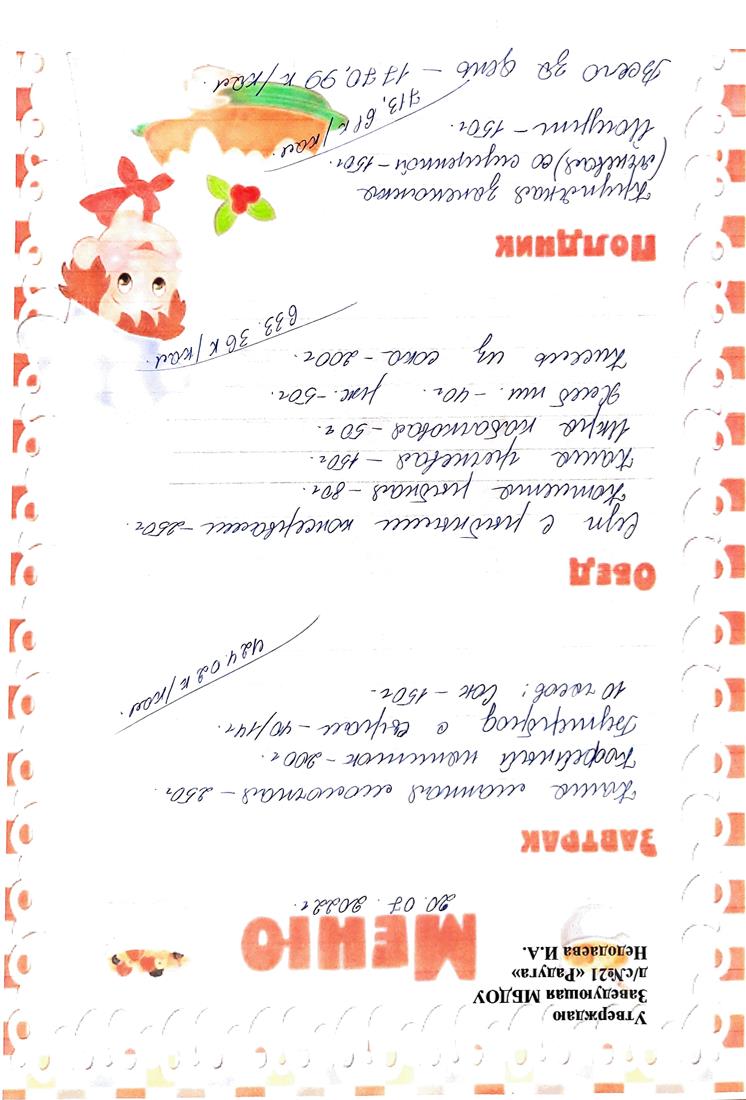 Утверждаю
Заведующая МБДОУ
д/с№21 «Радуга»
Недодаева И.А.
Меню
20.07.2022г.
Завтрак
Каша манная молочная – 250г.
Кофейный напиток – 200г.
Бутерброд с сыром – 40/14г.
10 часов: Сок – 150г.
424.02 к/кал
Обед
Суп с рыбными консервами – 250г.
Котлета рыбная – 80г.
Каша гречневая – 150г.
Икра кабачковая – 50г.
Хлеб пш. – 40г. рж. – 50г.
Кисель из сока – 200г.
633.36 к/кал.
Полдник
Крупяная запеканка
(манная) со сгущенкой – 150г.
Йогурт – 150г.
713,61 к/кал.
Всего за день – 1770,99 к/кал.